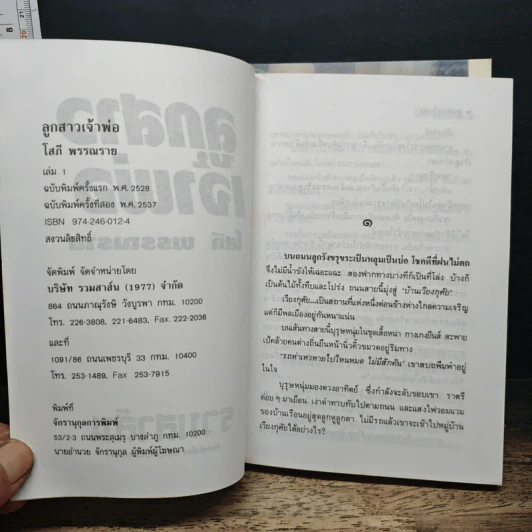 ลูกสาวเจ้าพ่อ
โสภี พรรณราย
เล่ม 1
ฉบับพิมพ์ครั้งแรก พ.ศ. 2528
ฉบับพิมพ์ครั้งที่สอง พ.ศ. 2537
ISBN 974-246-012-4
สงวนลิขสิทธิ์
จัดพิมพ์ จัดจำหน่ายโดย
บริษัท รวมสาส์น (1977) จำกัด
864 ถนนภาณุรังษี วังบูรพา กทม. 10200
โทร. 226-3808, 221-6483, Fax. 222-2036
และที่
1091/86 ถนนเพชรบุรี 33 กทม. 10400
โทร. 253-1489, Fax 253-7915
พิมพ์ที่
จักรานุกูลการพิมพ์
53/2-3 ถนนพระสุเมรุ บางลำภู กทม. 10200
นายอำนวย จักรานุกูล ผู้พิมพ์ผู้โฆษณา
๑
บนถนนลูกรังขรุขระเป็นหลุมเป็นบ่อ โชคดีที่ฝนไม่ตก
จึงไม่มีน้ำขังให้เฉอะแฉะ สองฟากทางบางทีก็เป็นที่โล่ง บ้างก็
เป็นต้นไม้ทั้งทึบและโปร่ง ถนนสายนี้มุ่งสู่ 'บ้านเวียงกุศัย'
เวียงกุศัย...เป็นสถานที่แห่งหนึ่งค่อนข้างห่างไกลความเจริญ
แต่ก็มีพลเมืองอยู่กันหนาแน่น
บนเส้นทางสายนี้บุรุษหนุ่มในชุดเสื้อหนา กางเกงยีนส์ สะพาย
เป้คล้ายคนต่างถิ่นยืนหน้านิ่วคิ้วขมวดอยู่ริมทาง
'รถห่าเหวหายไปไหนหมด ไม่มีสักคัน' เขาสบถพึมพำอยู่
ในใจ
บุรุษหนุ่มมองดวงอาทิตย์ ซึ่งกำลังจะลับขอบเขา ราตรี
ค่อยๆ มาเยือน เงาดำทาบทับไปตามถนน และแสงไฟวอมแวม
ของบ้านเรือนอยู่สุดลูกหูลูกตา ไม่มีรถแล้วเขาจะเข้าไปหมู่บ้าน
เวียงกุศัยได้อย่างไร?